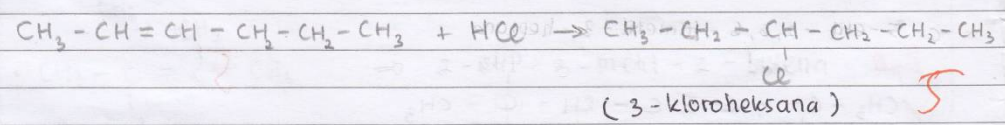 CH₃ - CH = CH - CH₂ - CH₂ - CH₃ + HCl → CH₃ - CH₂ - CH - CH₂ - CH₂ - CH₃
Cl
(3 - kloroheksana)